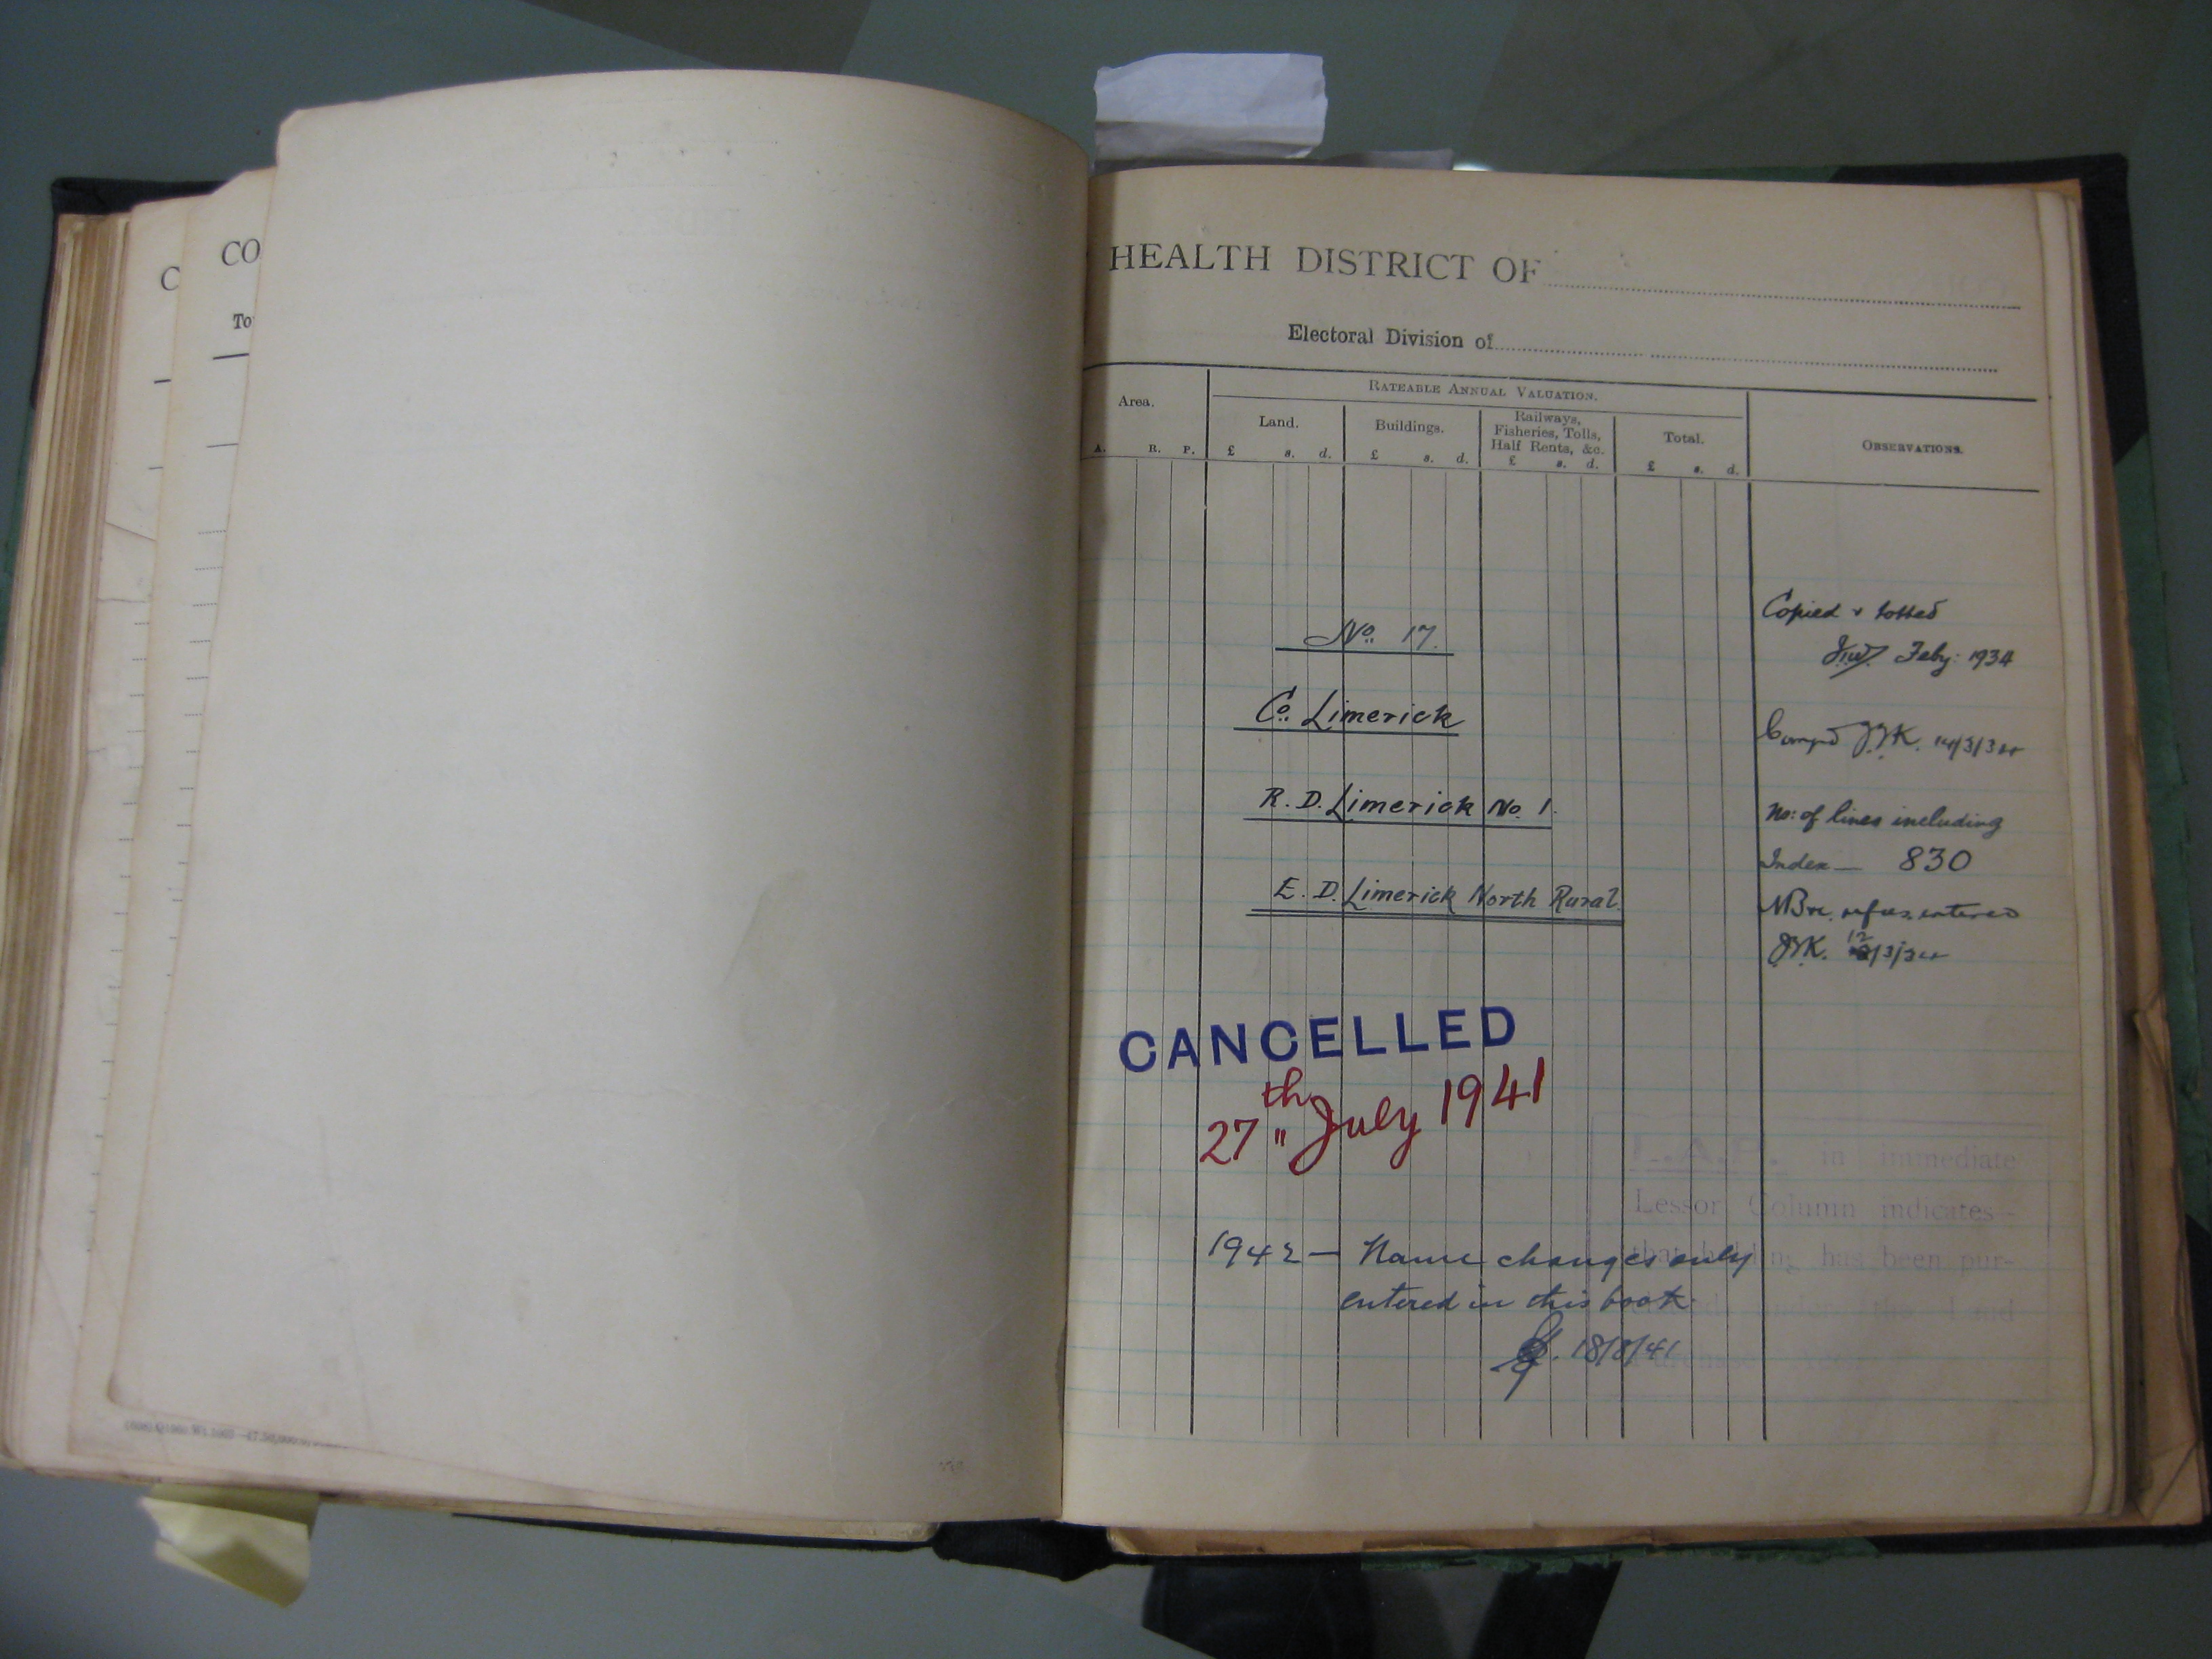 C
CO
To
HEALTH DISTRICT OF
Electoral Division of
Area.
A. R. P.
RATEABLE ANNUAL VALUATION.
Land.
£ s. d.
Buildings.
£ s. d.
Railways,
Fisheries, Tolls,
Half Rents, &c.
£ s. d.
Total.
£ s. d.
OBSERVATIONS.
No. 17.
Co. Limerick
R. D. Limerick No. 1.
E. D. Limerick North Rural.
Copied & totted
Feby: 1934
Compd J.J.K. 14/3/34
No: of lines including
Index — 830
entered
J.J.K. 12/3/34
CANCELLED
27th July 1941
1942 — Name changes only
entered in this book.
18/8/41
L.A.P. in immediate
Lessor Column indicates
that holding has been pur-
Land